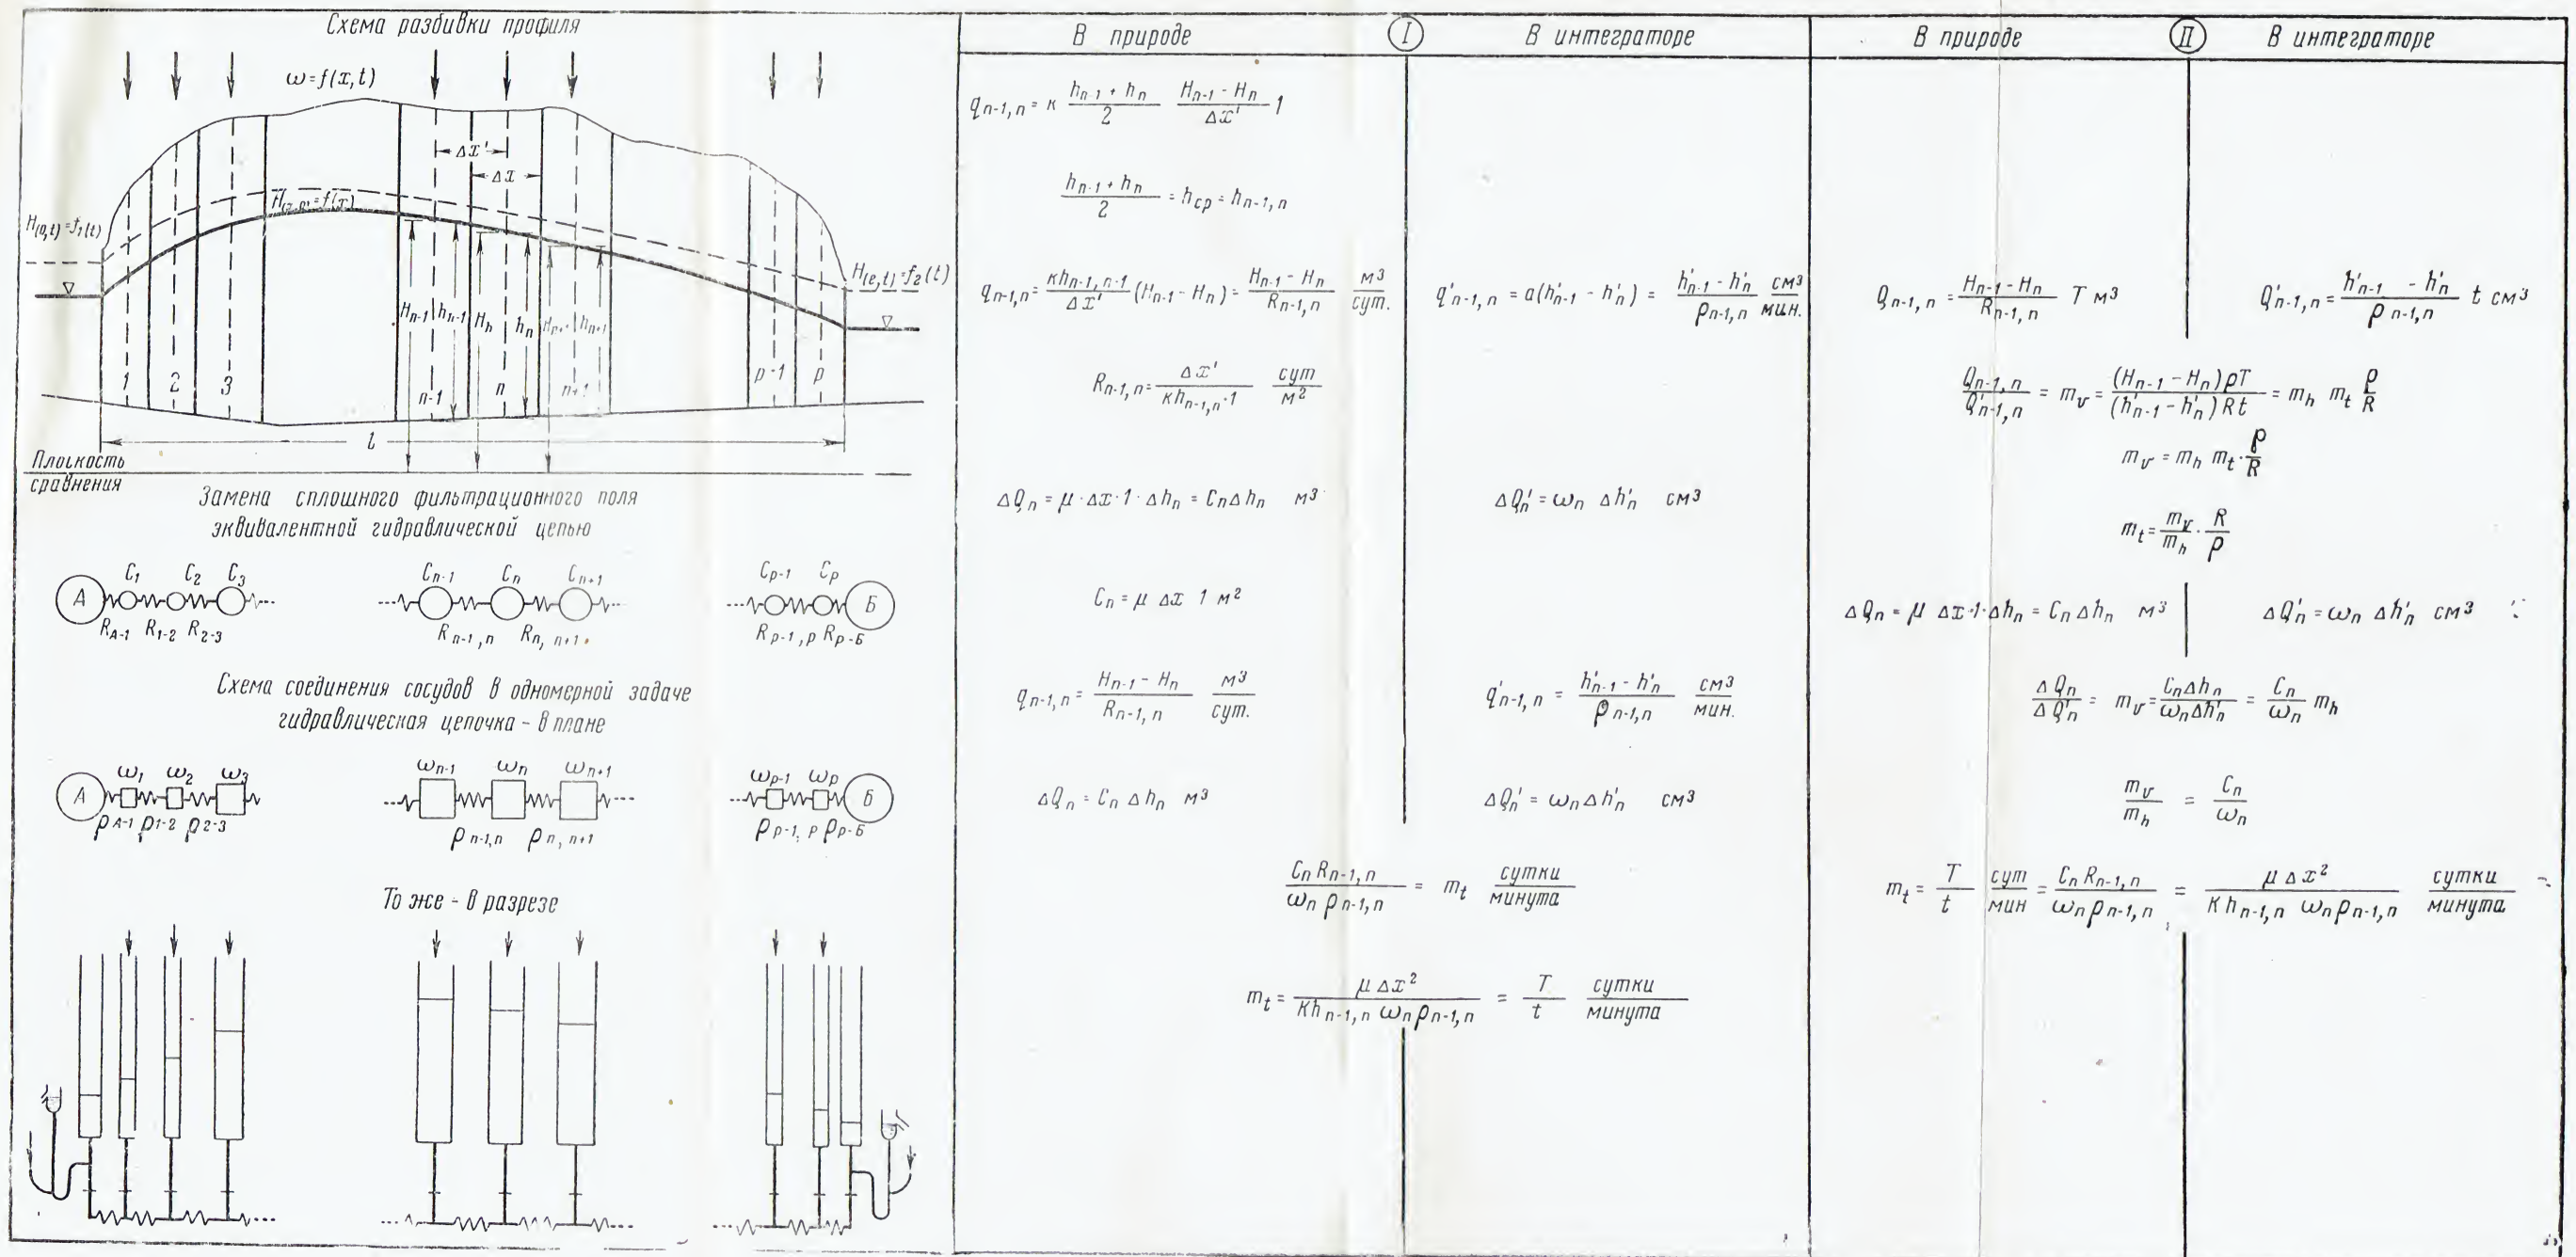 Схема разбивки профиля
ω=f(x,t)
Δx'
Δx
H(0,t)=f₁(t)
=f(x)
H(e,t)=f₂(t)
Hn-1 hn-1 Hn hn hn+1
1 2 3 n-1 n n+1 p-1 p
l
Плоскость
сравнения
Замена сплошного фильтрационного поля
эквивалентной гидравлической цепью
C₁ C₂ C₃ Cn-1 Cn Cn+1 Cp-1 Cp
А Б
RA-1 R1-2 R2-3 Rn-1,n Rn,n+1 Rp-1,p Rp-Б
Схема соединения сосудов в одномерной задаче
гидравлическая цепочка - в плане
ω₁ ω₂ ω₃ ωn-1 ωn ωn+1 ωp-1 ωp
А Б
ρA-1 ρ1-2 ρ2-3 ρn-1,n ρn,n+1 ρp-1,p ρp-Б
То же - в разрезе
В природе I В интеграторе
qn-1,n = к (hn-1 + hn)/2 (Hn-1 - Hn)/Δx' 1
(hn-1 + hn)/2 = hср = hn-1,n
qn-1,n = кhn-1,n·1/Δx' (Hn-1 - Hn) = (Hn-1 - Hn)/Rn-1,n м³/сут.
q'n-1,n = a(h'n-1 - h'n) = (h'n-1 - h'n)/ρn-1,n см³/мин.
Rn-1,n = Δx'/(кhn-1,n·1) сут/м²
ΔQn = μ·Δx·1·Δhn = CnΔhn м³
ΔQ'n = ωn Δh'n см³
Cn = μ Δx 1 м²
qn-1,n = (Hn-1 - Hn)/Rn-1,n м³/сут.
q'n-1,n = (h'n-1 - h'n)/ρn-1,n см³/мин.
ΔQn = Cn Δhn м³
ΔQ'n = ωn Δh'n см³
Cn Rn-1,n/(ωn ρn-1,n) = mt сутки/минута
mt = μ Δx²/(Кhn-1,n ωn ρn-1,n) = T/t сутки/минута
В природе II В интеграторе
Qn-1,n = (Hn-1 - Hn)/Rn-1,n T м³
Q'n-1,n = (h'n-1 - h'n)/ρn-1,n t см³
Qn-1,n/Q'n-1,n = mv = (Hn-1 - Hn)ρT/((h'n-1 - h'n)Rt) = mh mt ρ/R
mv = mh mt·ρ/R
mt = mv/mh · R/ρ
ΔQn = μ Δx·1·Δhn = Cn Δhn м³
ΔQ'n = ωn Δh'n см³
ΔQn/ΔQ'n = mv = CnΔhn/(ωnΔh'n) = Cn/ωn mh
mv/mh = Cn/ωn
mt = T/t сут/мин = Cn Rn-1,n/(ωn ρn-1,n) = μ Δx²/(К hn-1,n ωnρn-1,n) сутки/минута